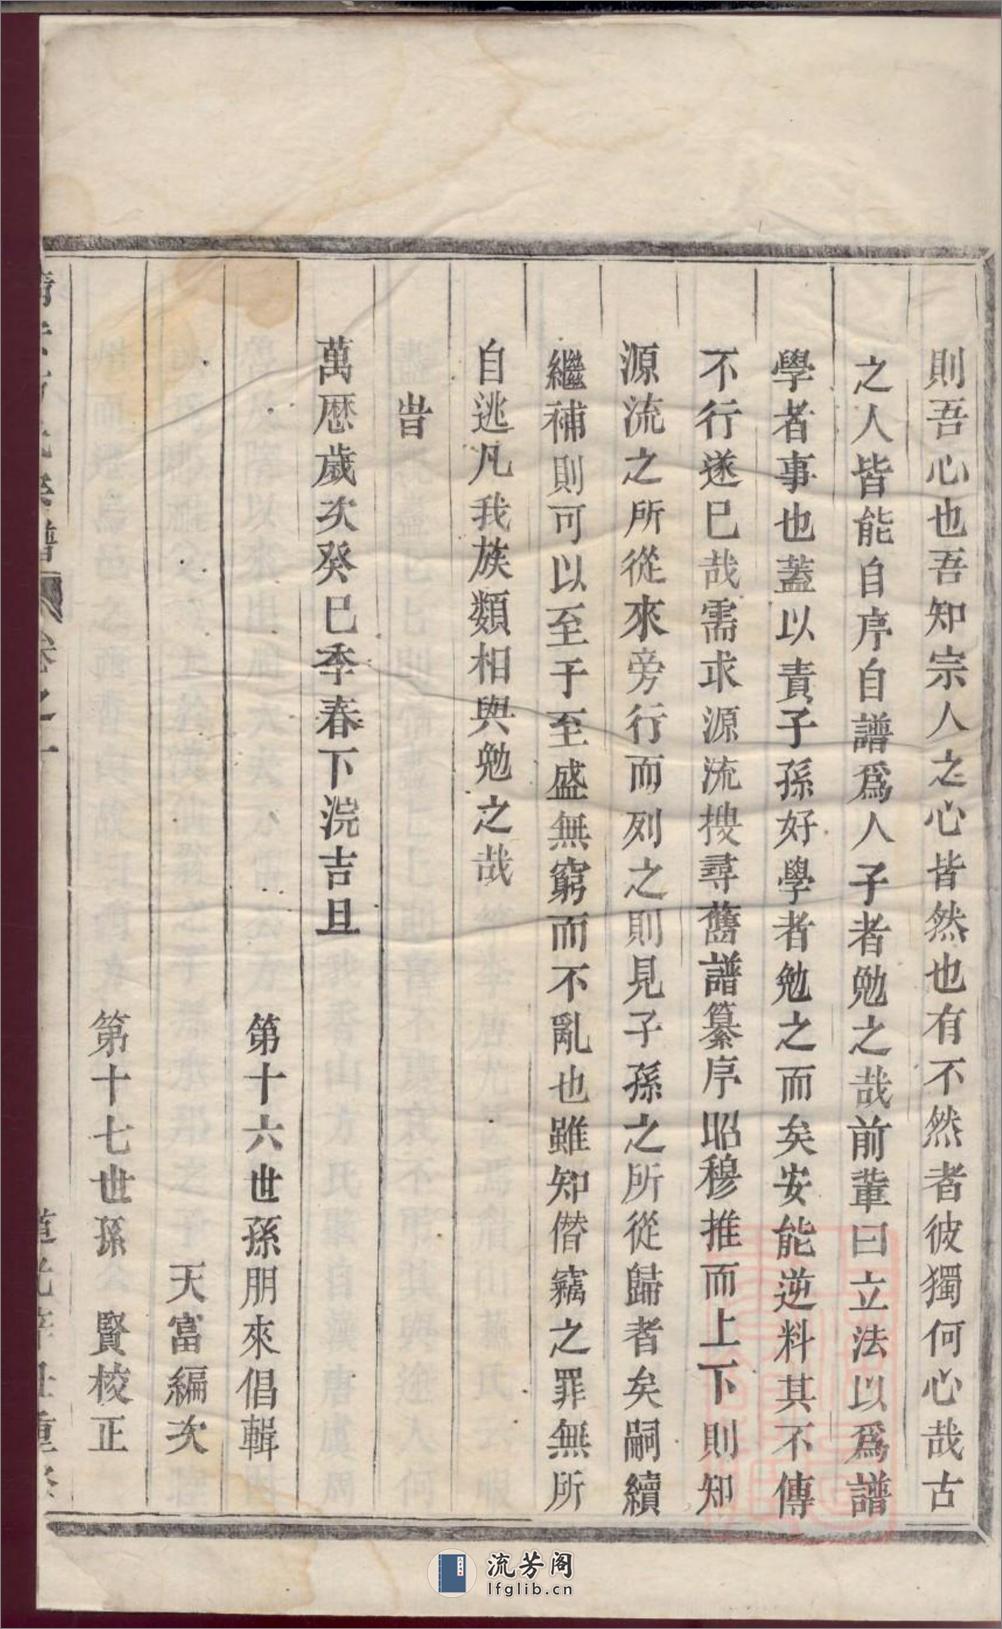 則吾心也吾知宗人之心皆然也有不然者彼獨何心哉古
之人皆能自序自譜爲人子者勉之哉前輩曰立法以爲譜
學者事也蓋以責子孫好學者勉之而矣安能逆料其不傳
不行遂已哉需求源流搜尋舊譜纂序昭穆推而上下則知
源流之所從來旁行而列之則見子孫之所從歸者矣嗣續
繼補則可以至于至盛無窮而不亂也雖知僭竊之罪無所
自逃凡我族類相與勉之哉
旹
萬曆歲次癸巳季春下浣吉旦
第十六世孫朋來倡輯
天富編次
第十七世孫 賢校正
譜 卷之一
重修
流芳阁
lfglib.cn